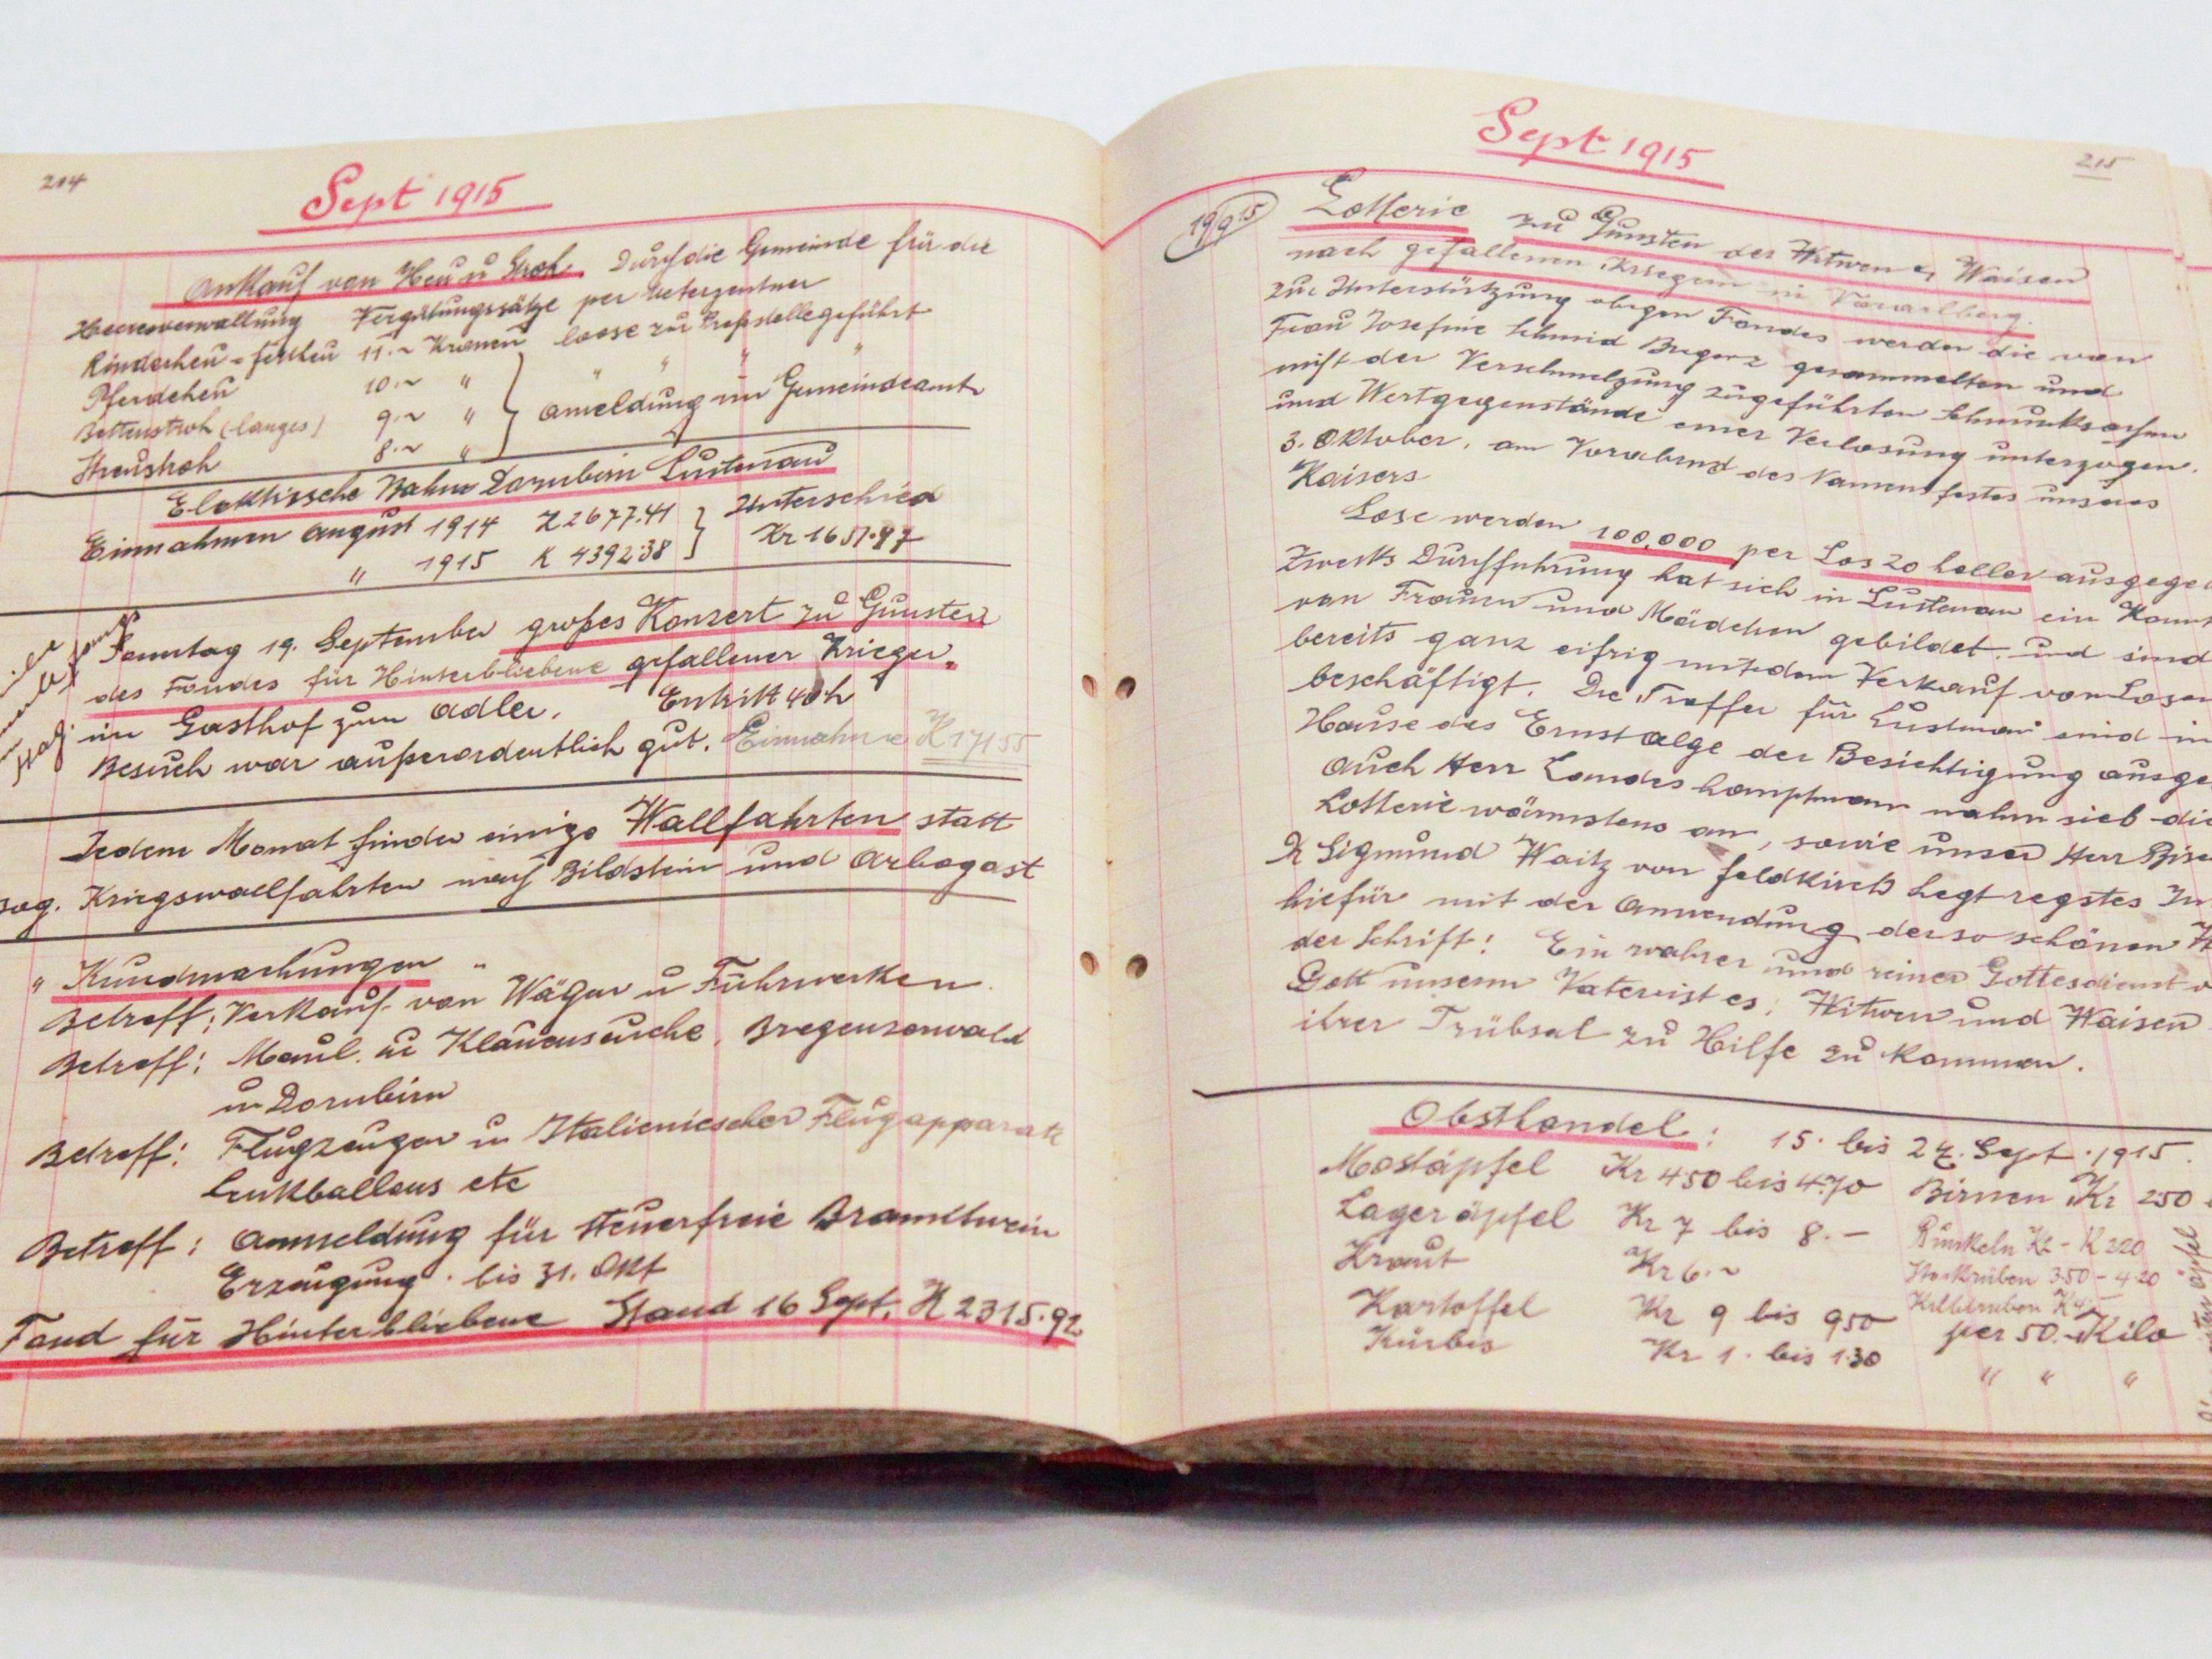 214
Sept 1915
Ankauf von Heu u Stroh. Durch die Gemeinde für die
Heeresverwaltung Vergütungssätze per Meterzentner
Rinderheu - fettheu 11.~ Kronen loose zur Preßstelle geführt
Pferdeheu 10.~ " " " "
Bettenstroh (langes) 9.~ " } Anmeldung im Gemeindeamt
Streustroh 8.~ "
Elektrische Bahn Dornbirn Lustenau
Einnahmen August 1914 K 2677.41 } Unterschied
" 1915 K 4392.38
Sonntag 19. September großes Konzert zu Gunsten
des Fondes für Hinterbliebene gefallener Krieger.
im Gasthof zum Adler. Entritt 40 h
Besuch war außerordentlich gut. Einnahme K 171 55
Jedem Monat finden einige Wallfahrten statt
sog. Kriegswallfahrten nach Bildstein und Arbogast
" Kundmachungen "
Betreff: Verkauf von Wägen u Fuhrwerken.
Betreff: Maul. u Klauenseuche, Bregenzerwald
u Dornbirn
Betreff: Flugzeugen u Italienischer Flugapparate
Lenkballons etc
Betreff: Anmeldung für steuerfreie Branntwein
Erzeugung. bis 31. Okt
Fond für Hinterbliebene Stand 16 Sept. K 2315.92
Sept 1915
215
19/9 15
Lotterie zu Gunsten der Witwen u. Waisen
nach gefallenen Kriegern in Vorarlberg.
Zur Unterstützung obigen Fondes werden die von
Frau Josefine Schmid Bregenz gesammelten und
nicht der Verschmelzung zugeführten Schmucksachen
und Wertgegenstände einer Verlosung unterzogen.
3. Oktober, am Vorabend des Namensfestes unseres
Kaisers
Lose werden 100,000 per Los 20 heller ausgege
Zwecks Durchführung hat sich in Lustenau ein Komit
von Frauen und Mädchen gebildet, und sind
bereits ganz eifrig mit dem Verkauf von Losen
beschäftigt. Die Treffer für Lustenau sind im
Hause des Ernst Alge der Besichtigung ausge
Auch Herr Landeshauptmann nahm sich die
Lotterie wärmstens an, sowie unser Herr Bisc
Dr Sigmund Waitz von Feldkirch hegt regstes In
hiefür mit der Anwendung der so schönen W
der Schrift: Ein wahrer und reiner Gottesdienst v
Gott unserm Vater ist es, Witwen und Waisen
ihrer Trübsal zu Hilfe zu kommen.
Obsthandel: 15. bis 27. Sept. 1915.
Mostäpfel Kr 4 50 bis 4.70 Birnen Kr 2 50
Lageräpfel Kr 7 bis 8.- Runkeln K2 - K 2 20
Kraut Kr 6.~ Stockrüben 3.50 - 4.20
Kartoffel Kr 9 bis 9 50 per 50. Kilo
Kürbis Kr 1. bis 1.30 " " "